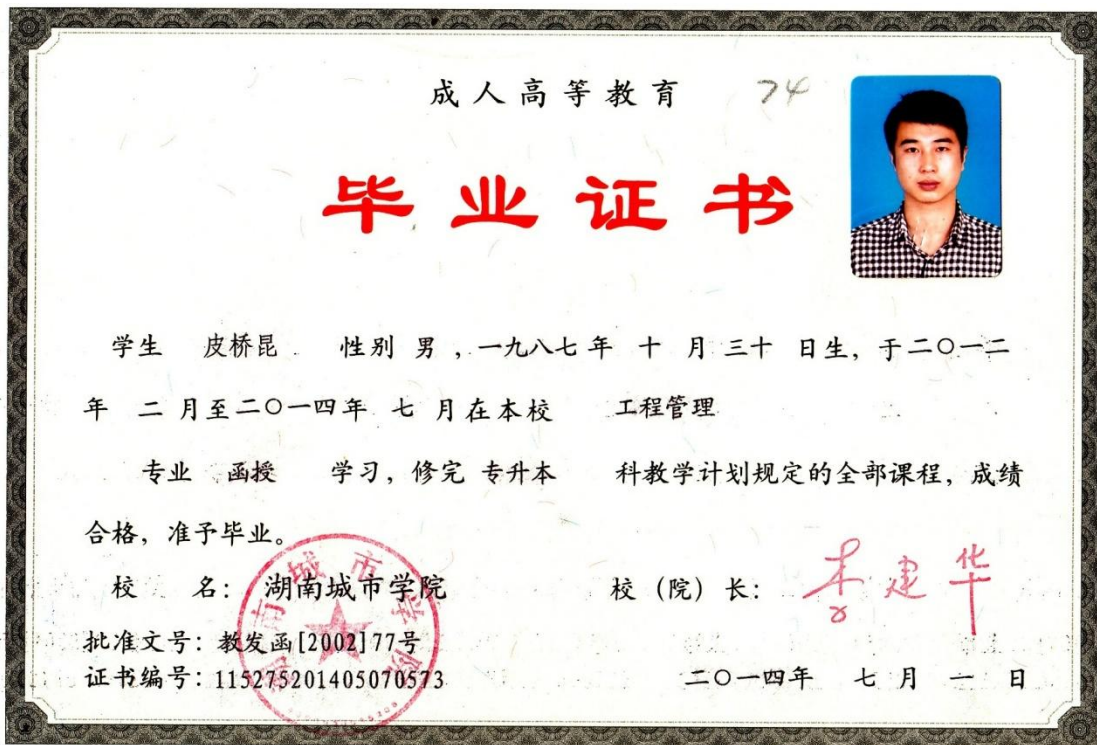 成人高等教育 74
毕业证书
学生 皮桥昆 性别 男 ，一九八七年 十 月 三十 日生，于二〇一二
年 二 月至二〇一四年 七 月在本校 工程管理
专业 函授 学习，修完 专升本 科教学计划规定的全部课程，成绩
合格，准予毕业。
校 名：湖南城市学院 校（院）长：李建华
批准文号：教发函[2002]77号
证书编号：115275201405070573 二〇一四年 七 月 一 日
湖南城市学院